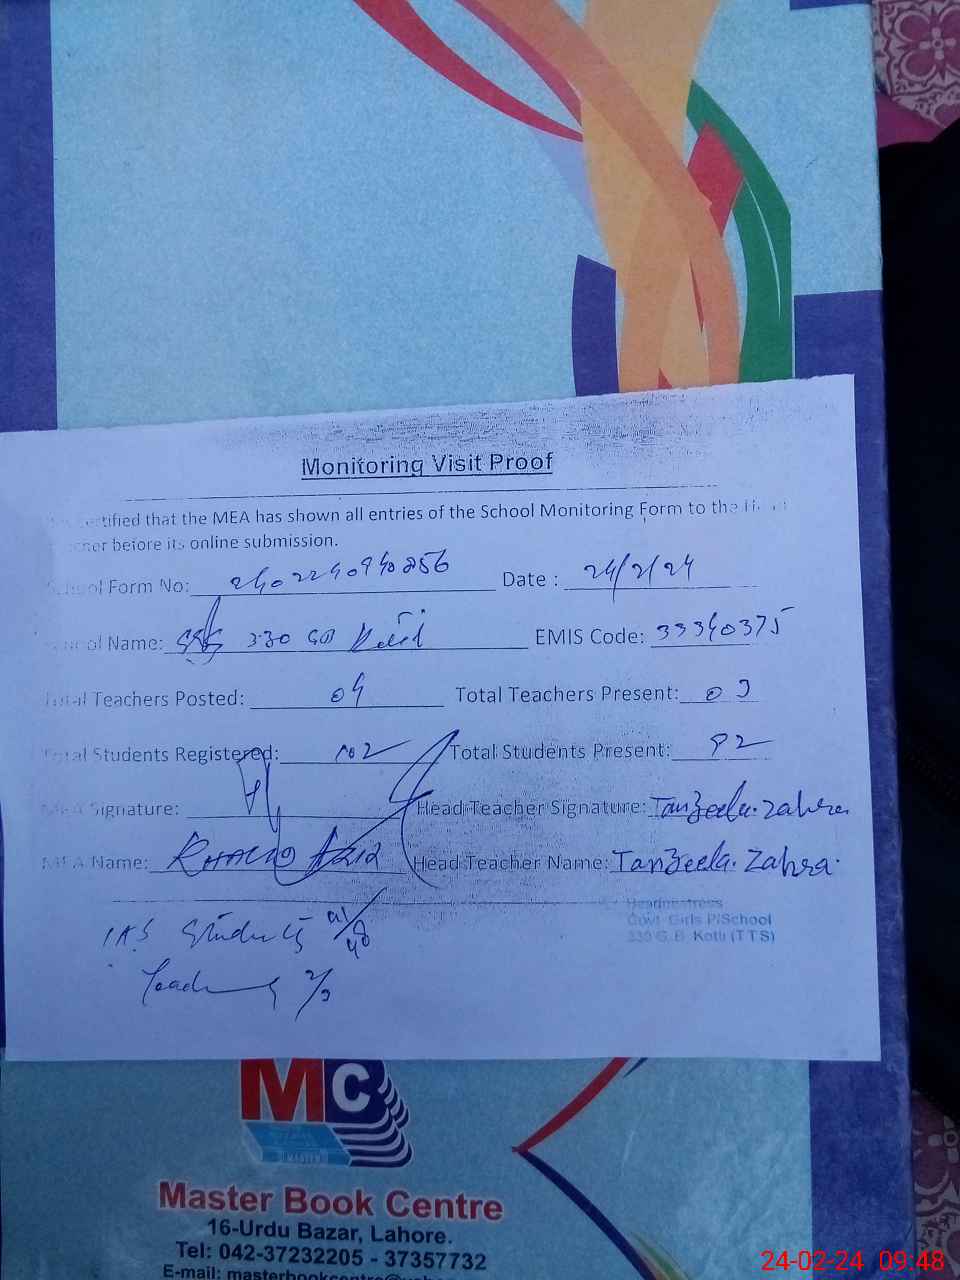 Monitoring Visit Proof
certified that the MEA has shown all entries of the School Monitoring Form to the
before its online submission.
School Form No: Date : 24/2/24
School Name: 330 GB EMIS Code: 33340375
Total Teachers Posted: 04 Total Teachers Present: 03
Total Students Registered: 102 Total Students Present: 92
MEA Signature: Head Teacher Signature: Tanzeela. Zahra
MEA Name: Head Teacher Name: Tanzeela. Zahra.
Headmistress
Govt. Girls P/School
330 G.B. Kotli (T T S)
Students
MC
MASTER
Master Book Centre
16-Urdu Bazar, Lahore.
Tel: 042-37232205 - 37357732
E-mail:
24-02-24 09:48